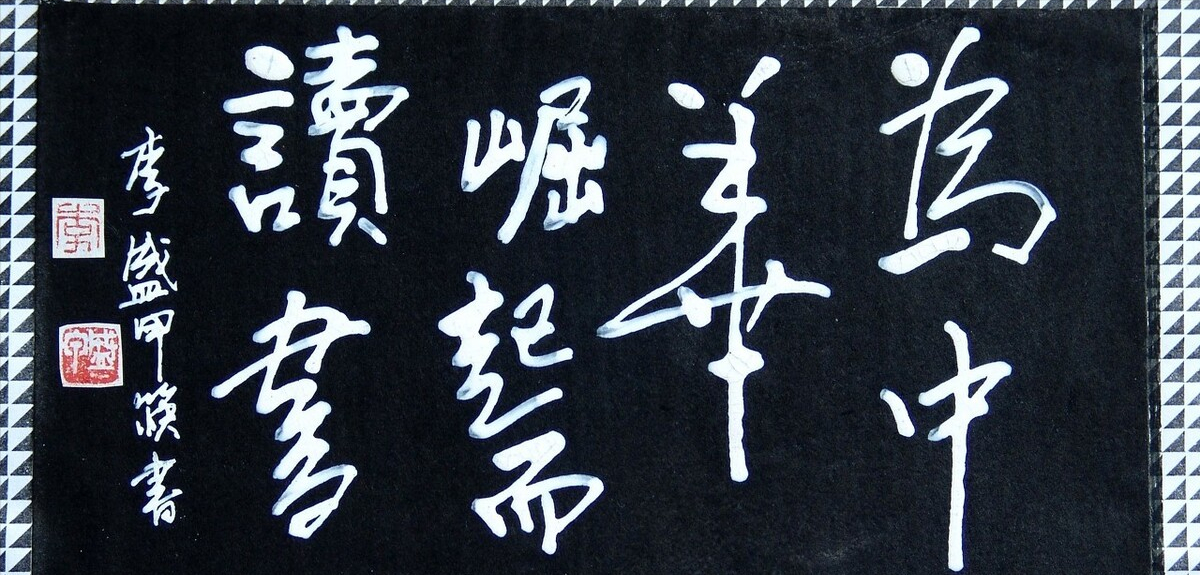 為中
華
崛起而
讀書
李盛甲 書
李